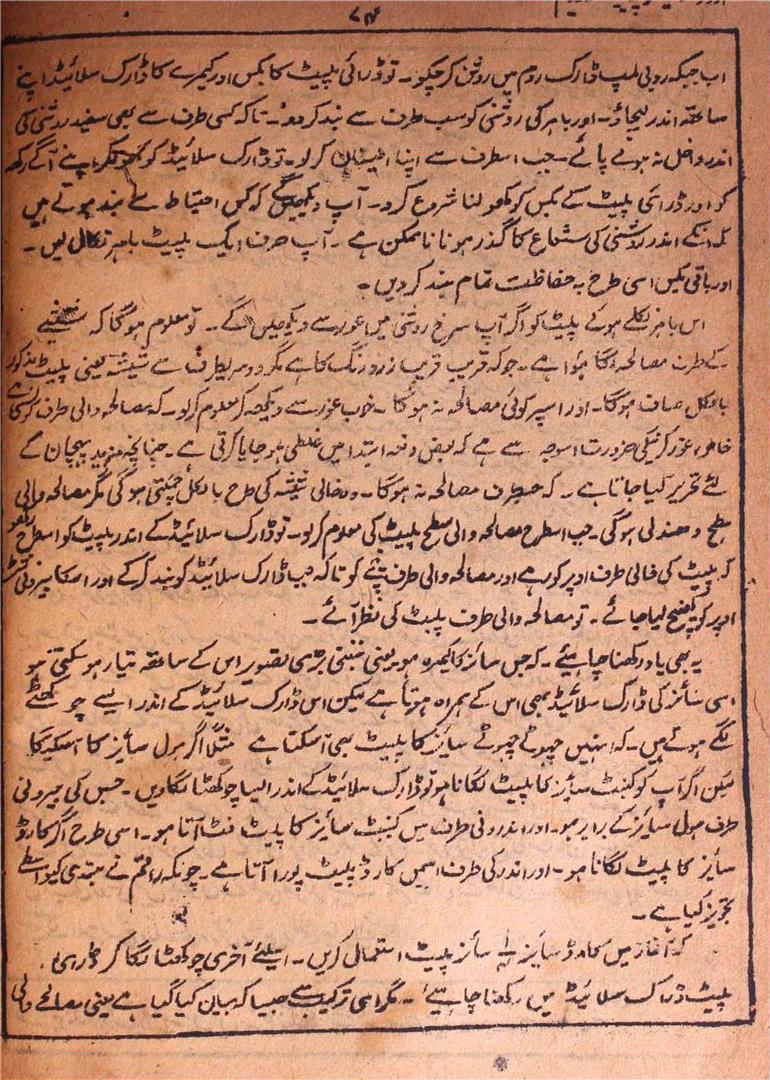 ۷۴
اب جبکہ روبی لمپ ڈارک روم میں روشن کر چکو۔ تو ڈرائی پلیٹ کا بکس اور کیمرے کا ڈارک سلائیڈ اپنے
ساتھ اندر لیجاؤ۔ اور باہر کی روشنی کو سب طرف سے بند کر دو۔ تاکہ کسی طرف سے بھی سفید روشنی کی
اندر داخل نہ ہونے پائے۔ جب اسطرف سے اپنا اطمینان کر لو۔ تو ڈارک سلائیڈ کو کھولکر اپنے آگے رکھ
کو اور ڈرائی پلیٹ کے بکس کو کھولنا شروع کرو۔ آپ دیکھیں گے کہ کس احتیاط سے بند ہوتے ہیں
کہ انکے اندر روشنی کی شعاع کا گذر ہونا ناممکن ہے۔ آپ صرف ایک پلیٹ باہر نکال لیں۔
اور باقی بکس اسی طرح بہ حفاظت تمام بند کر دیں۔
اس باہر نکلے ہوئے پلیٹ کو اگر آپ سرخ روشنی میں غور سے دیکھیں گے۔ تو معلوم ہوگا کہ شیشے
کے طرف مصالحہ لگا ہوا ہے۔ جو کہ قریب قریب زرد رنگ کا ہے مگر دوسری طرف سے شیشہ یعنی پلیٹ مذکور
بالکل صاف ہوگا۔ اور اسپر کوئی مصالحہ نہ ہوگا۔ خوب غور سے دیکھ کر معلوم کر لو۔ کہ مصالحہ والی طرف کونسی ہے
خاص غور کرنیکی ضرورت اسوجہ سے ہے کہ بعض دفعہ ابتدا میں غلطی ہو جایا کرتی ہے۔ چنانچہ مزید پہچان کے
لئے تحریر کیا جاتا ہے۔ کہ جسطرف مصالحہ نہ ہوگا۔ وہ خالی شیشہ کی طرح بالکل چمکتی ہوگی مگر مصالحہ والی
سطح دھندلی ہوگی۔ جب اسطرح مصالحہ والی سطح پلیٹ کی معلوم کر لو۔ تو ڈارک سلائیڈ کے اندر پلیٹ کو اسطرح رکھو
کہ پلیٹ کی خالی طرف اوپر کو رہے اور مصالحہ والی طرف نیچے کو تاکہ جب ڈارک سلائیڈ کو بند کر کے اور اسکا بیرونی تختہ
اوپر کو کھینچ لیا جائے۔ تو مصالحہ والی طرف پلیٹ کی نظر آئے۔
یہ بھی یاد رکھنا چاہیئے۔ کہ جس سائز کا کیمرہ ہو یعنی جتنی بڑی تصویر اس کے ساتھ تیار ہو سکتی ہو
اسی سائز کی ڈارک سلائیڈ بھی اس کے ہمراہ ہوتا ہے لیکن اس ڈارک سلائیڈ کے اندر ایسے چوکھٹے
لگے ہوئے ہیں۔ کہ انہیں چھوٹے چھوٹے سائز کا پلیٹ بھی آ سکتا ہے مثلاً اگر ہول سائز کا
لیکن اگر آپ کو کبنٹ سائز کا پلیٹ لگانا ہو تو ڈارک سلائیڈ کے اندر ایسا چوکھٹا لگا دیں۔ جس کی بیرونی
طرف ہول سائز کے برابر ہو۔ اور اندرونی طرف میں کبنٹ سائز کا پلیٹ فٹ آتا ہو۔ اسی طرح اگر کارڈ
سائز کا پلیٹ لگانا ہو۔ اور اندر کی طرف اسمیں کارڈ پلیٹ پورا آتا ہے۔ چونکہ راقم نے مبتدی کیواسطے
تجویز کیا ہے۔
کہ آغاز میں کارڈ سائز سائز پلیٹ استعمال کریں۔ اسلئے آخری چوکھٹا لگا کر ڈرائی
پلیٹ ڈارک سلائیڈ میں رکھنا چاہیے۔ مگر اسی ترکیب سے جیسا کہ بیان کیا گیا ہے یعنی مصالحے والی